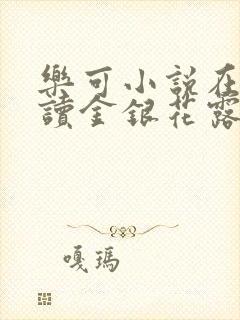 樂可小說在
讀金銀花露
嘎瑪